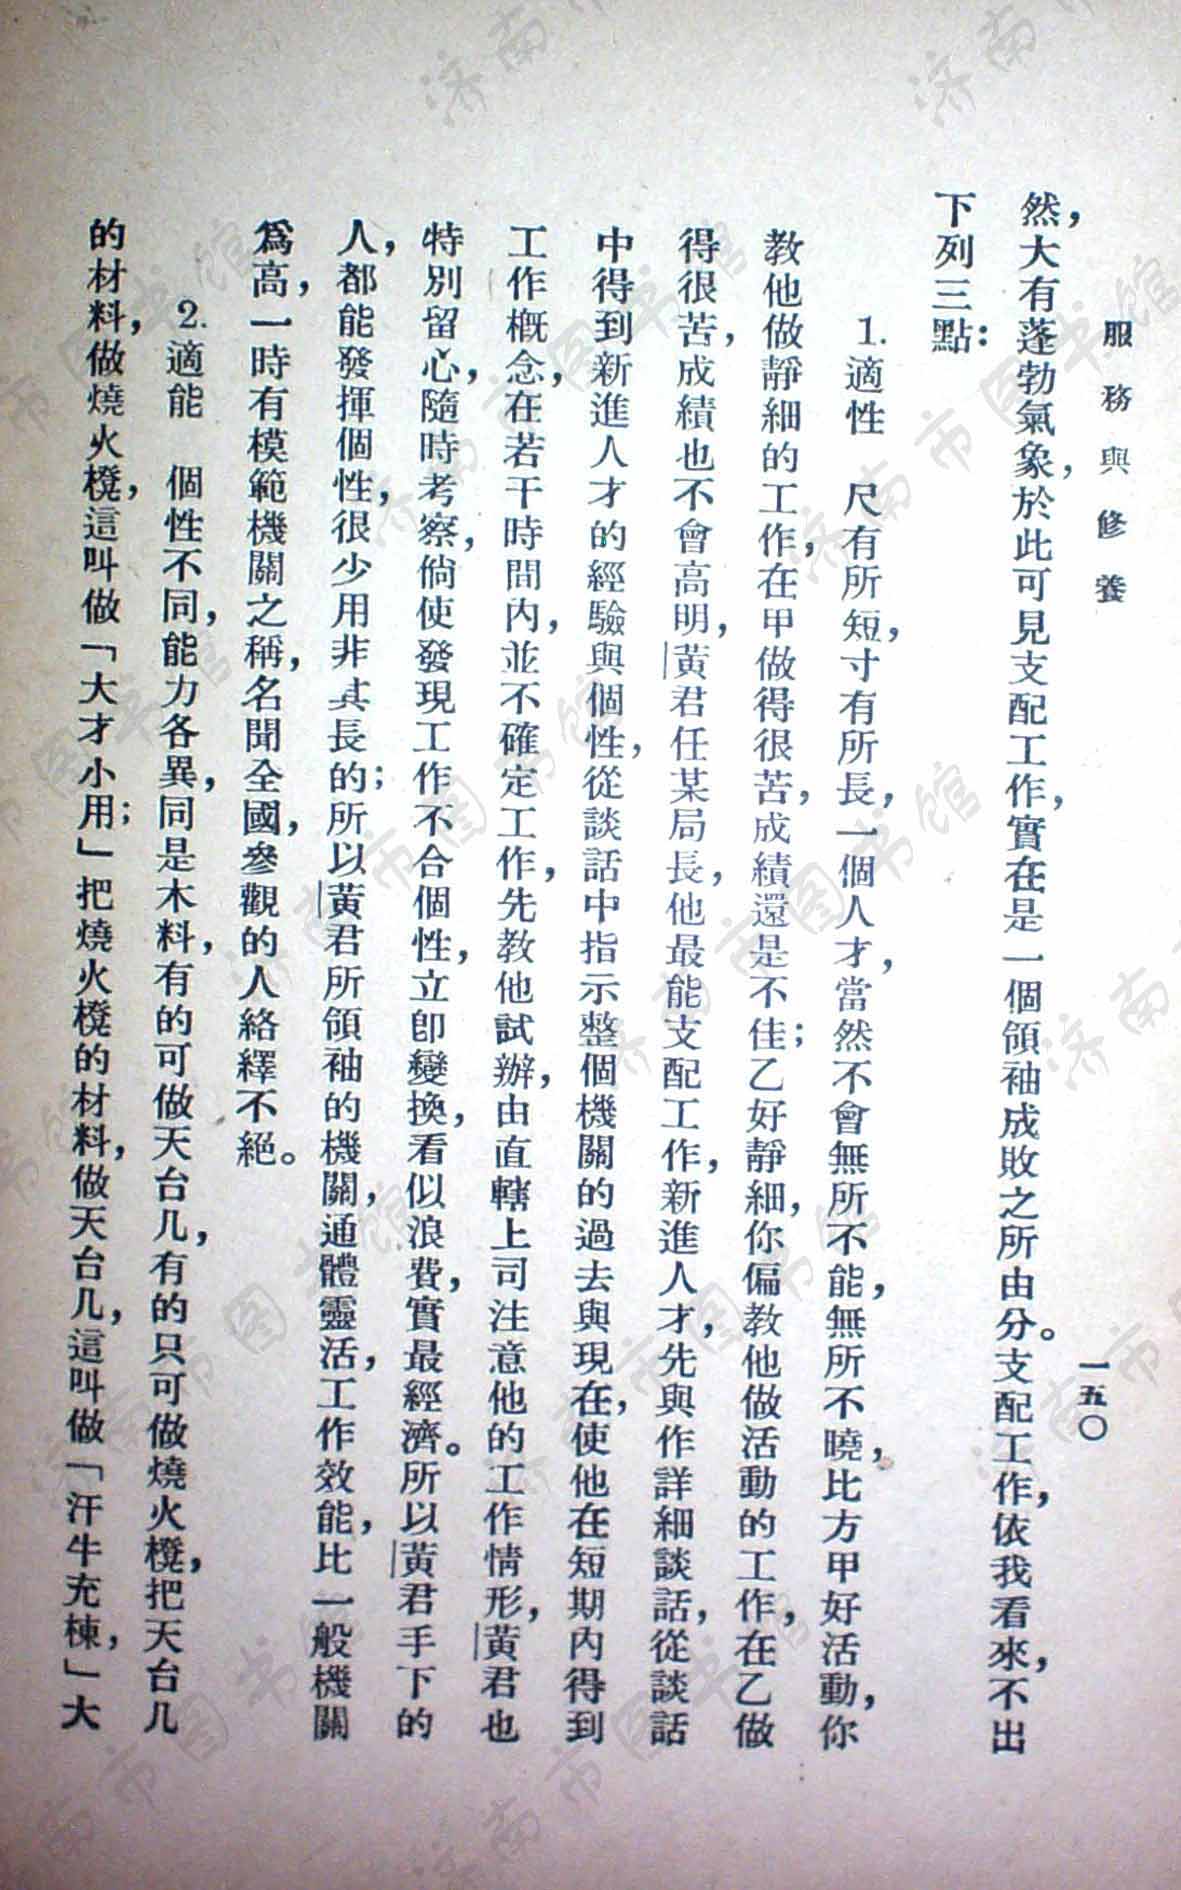 服務與修養
一五〇
然，大有蓬勃氣象，於此可見支配工作，實在是一個領袖成敗之所由分。支配工作，依我看來，不出
下列三點：
1. 適性　尺有所短，寸有所長，一個人才，當然不會無所不能，無所不曉，比方甲好活動，你
教他做靜細的工作，在甲做得很苦，成績還是不佳；乙好靜細，你偏教他做活動的工作，在乙做
得很苦，成績也不會高明，黃君任某局長，他最能支配工作，新進人才，先與作詳細談話，從談話
中得到新進人才的經驗與個性，從談話中指示整個機關的過去與現在，使他在短期內得到
工作概念，在若干時間內，並不確定工作，先教他試辦，由直轄上司注意他的工作情形，黃君也
特別留心，隨時考察，倘使發現工作不合個性，立卽變換，看似浪費，實最經濟。所以黃君手下的
人，都能發揮個性，很少用非其長的；所以黃君所領袖的機關，通體靈活，工作效能，比一般機關
爲高，一時有模範機關之稱，名聞全國，參觀的人絡繹不絕。
2. 適能　個性不同，能力各異，同是木料，有的可做天台几，有的只可做燒火櫈，把天台几
的材料，做燒火櫈，這叫做「大才小用；」把燒火櫈的材料，做天台几，這叫做「汗牛充棟，」大
济南市图书馆